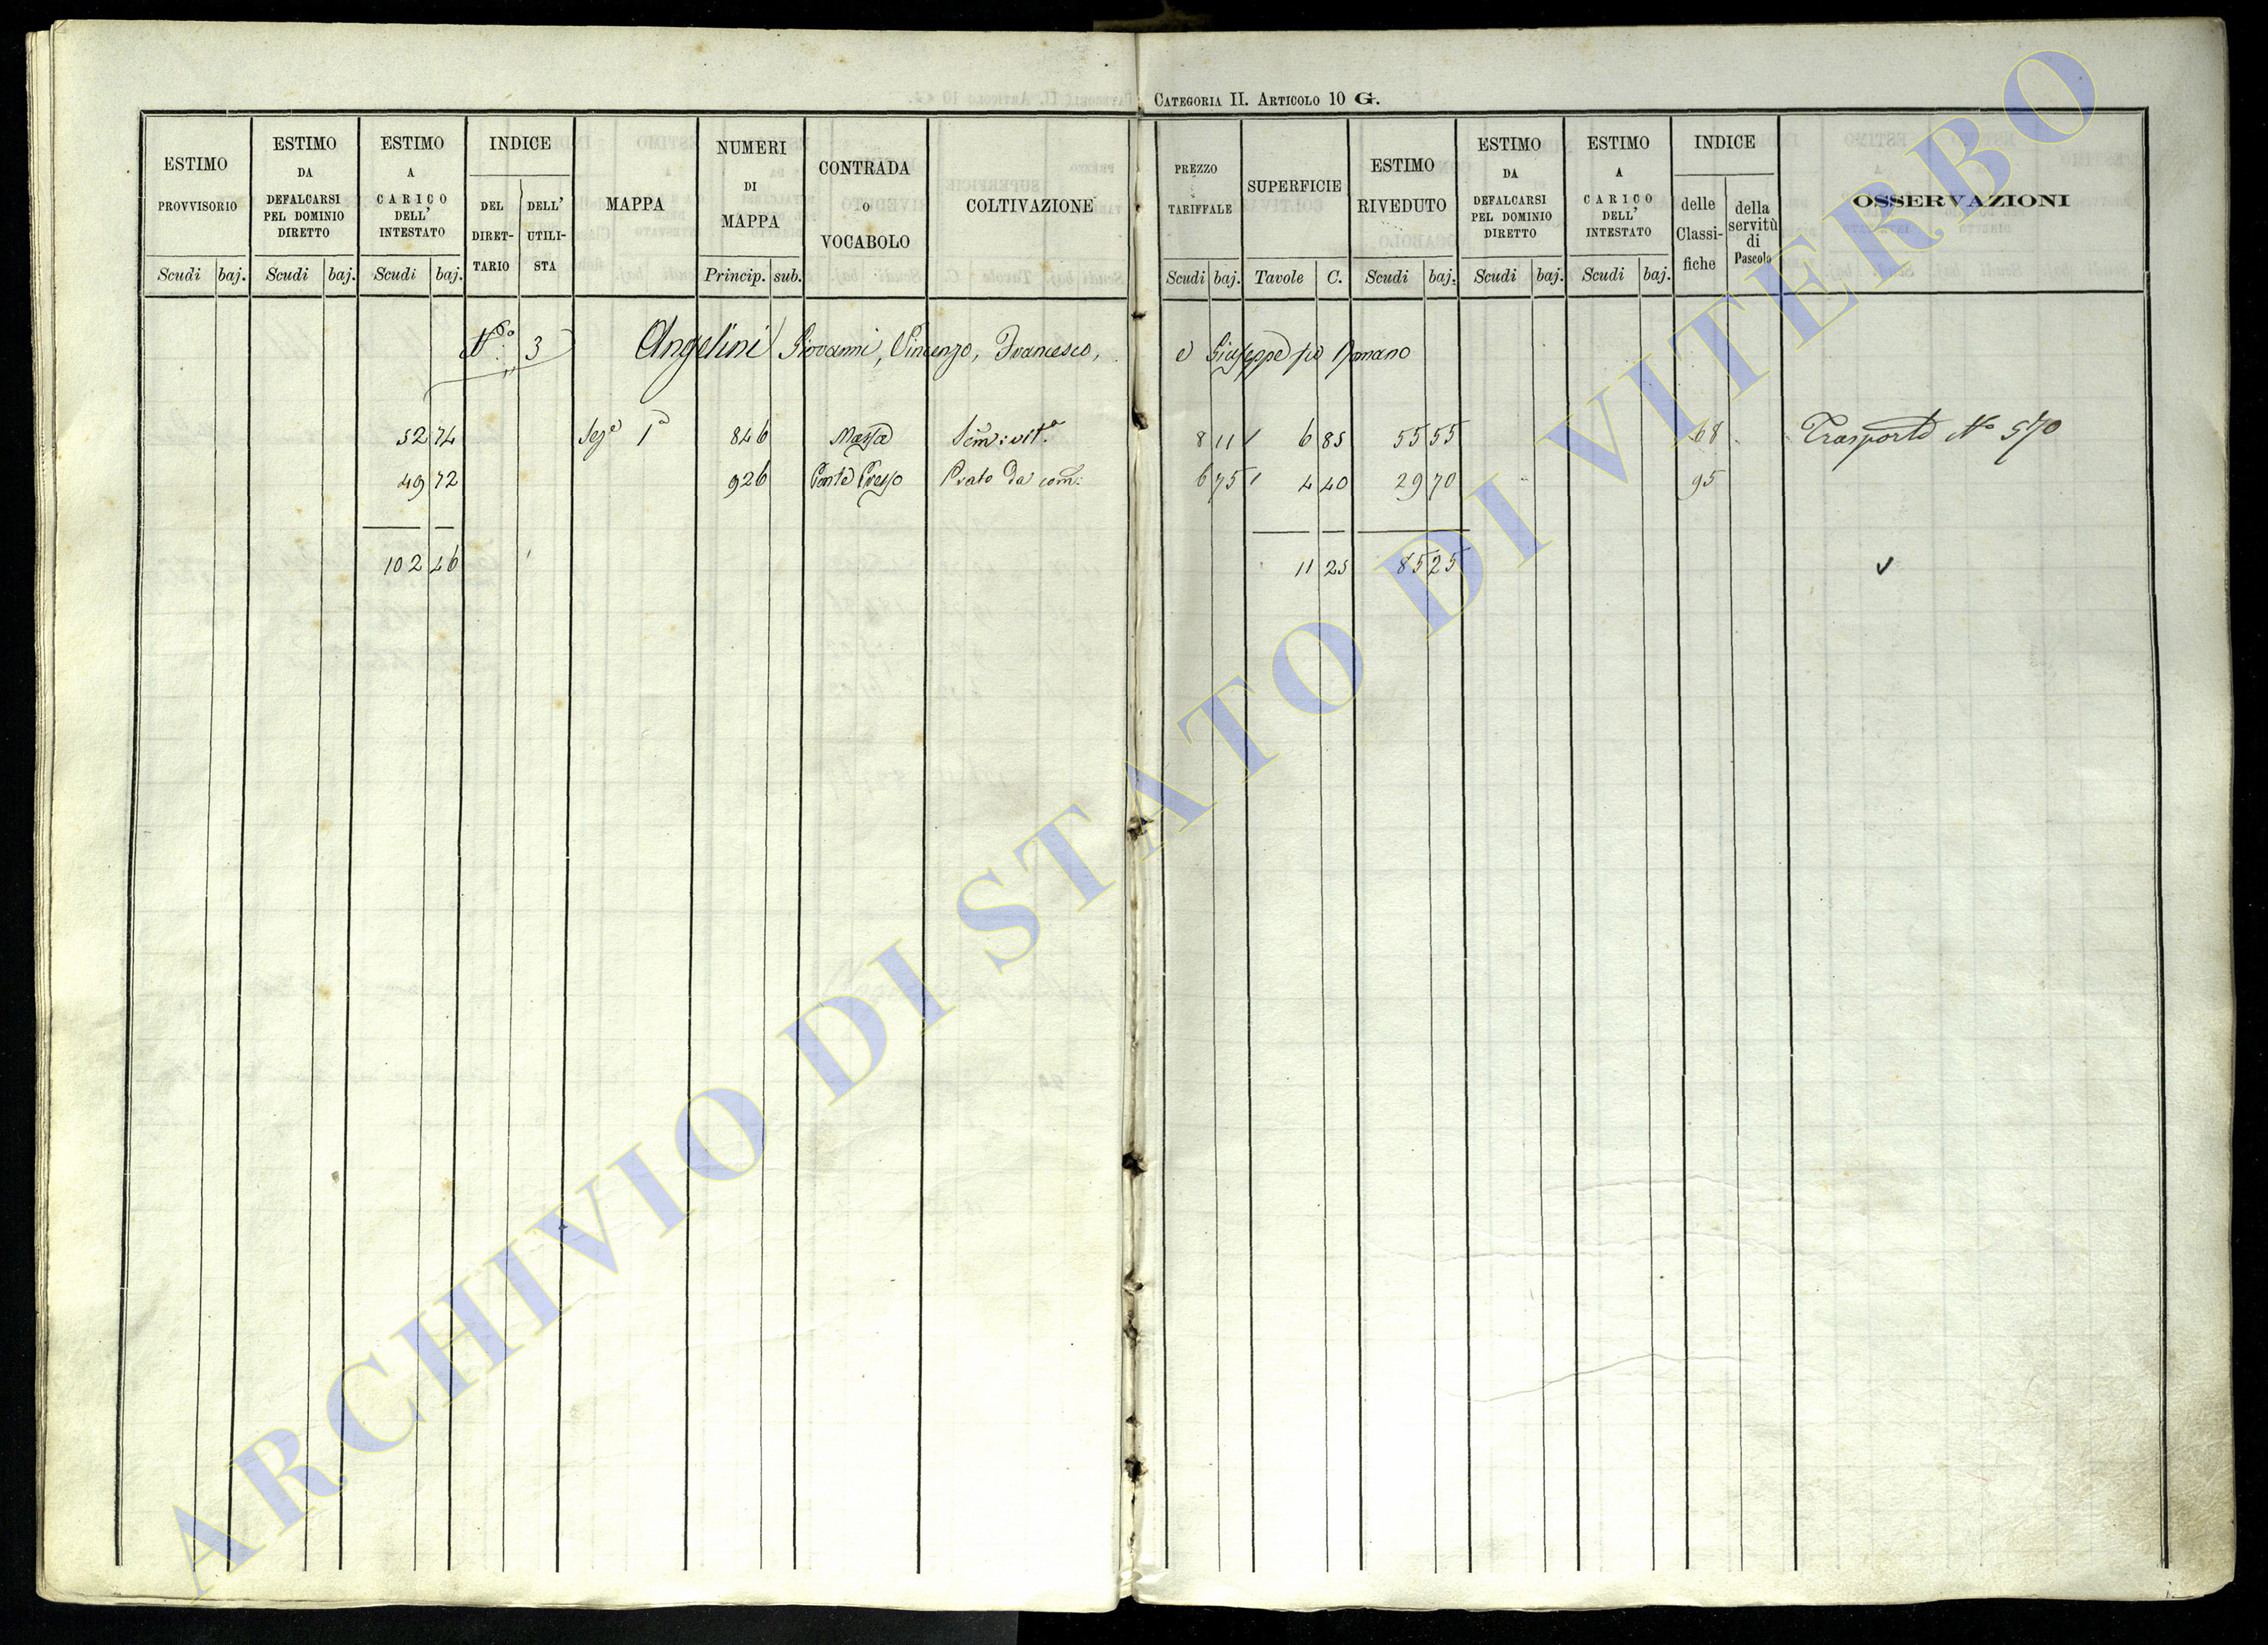 CATEGORIA II. ARTICOLO 10 G.
ESTIMO PROVVISORIO Scudi baj.
ESTIMO DA DEFALCARSI PEL DOMINIO DIRETTO Scudi baj.
ESTIMO A CARICO DELL' INTESTATO Scudi baj.
INDICE DEL DIRET-TARIO DELL' UTILI-STA
MAPPA
NUMERI DI MAPPA Princip. sub.
CONTRADA O VOCABOLO
COLTIVAZIONE
PREZZO TARIFFALE Scudi baj.
SUPERFICIE Tavole C.
ESTIMO RIVEDUTO Scudi baj.
ESTIMO DA DEFALCARSI PEL DOMINIO DIRETTO Scudi baj.
ESTIMO A CARICO DELL' INTESTATO Scudi baj.
INDICE delle Classi-fiche della servitù di Pascolo
OSSERVAZIONI
No 3 Angelini Giovanni, Vincenzo, Francesco, e Giuseppe fu
52 74 Seze 1a 846 Massa Sem: vit.o 8 11 6 85 55 55 68 Trasporto No 570
49 72 926 Prato da com: 6 75 4 40 29 70 95
102 46 11 25 85 25
ARCHIVIO DI STATO DI VITERBO